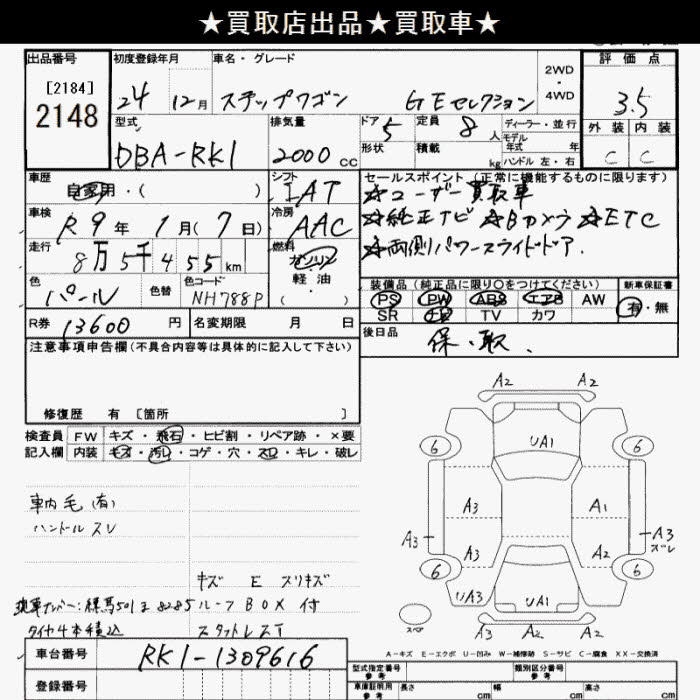 ★買取店出品★買取車★
出品番号 初度登録年月 車名・グレード 評価点
[2184]
2148
24 12月 ステップワゴン GEセレクション 2WD 4WD 3.5
型式 排気量 ドア 5 定員 8人 ディーラー・並行 外装 内装
DBA-RK1 2000cc 形状 積載 kg モデル年式 年 C C
ハンドル 左・右
車歴 自家用・( ) シフト IAT セールスポイント(正常に機能するものに限ります)
☆ユーザー買取車
車検 R9年1月(7日) 冷房 AAC ☆純正ナビ ☆Bカメラ ☆ETC
走行 8万5千455km 燃料 ガソリン 軽油・( ) ☆両側パワースライドドア.
色 パール 色替 色コード NH788P 装備品(純正品に限り○をつけてください) 新車保証書
PS PW ABS エアB AW 有・無
R券 13600円 名変期限 月 日 SR TV カワ
後日品 保・取.
注意事項申告欄(不具合内容等は具体的に記入して下さい)
修復歴 有 [箇所 ]
検査員 FW キズ・飛石・ヒビ割・リペア跡・×要
記入欄 内装 キズ・汚レ・コゲ・穴・スレ・キレ・破レ
車内毛(有)
ハンドルスレ
キズ E スリキズ
現車ナンバー:練馬501 8285 ルーフBOX付
タイヤ4本積込
A2 A2
6 UA1 6
A3 A1
A3 A3 A2 A3
スレ
6 6
UA3 UA1
スペア A3 A2
A-キズ E-エクボ U-凹み W-補修跡 S-サビ C-腐食 XX-交換済
車台番号 RK1-1309616
型式指定番号 参考 類別区分番号 参考
登録番号 車庫証明用 参考 長さ cm 幅 cm 高さ cm